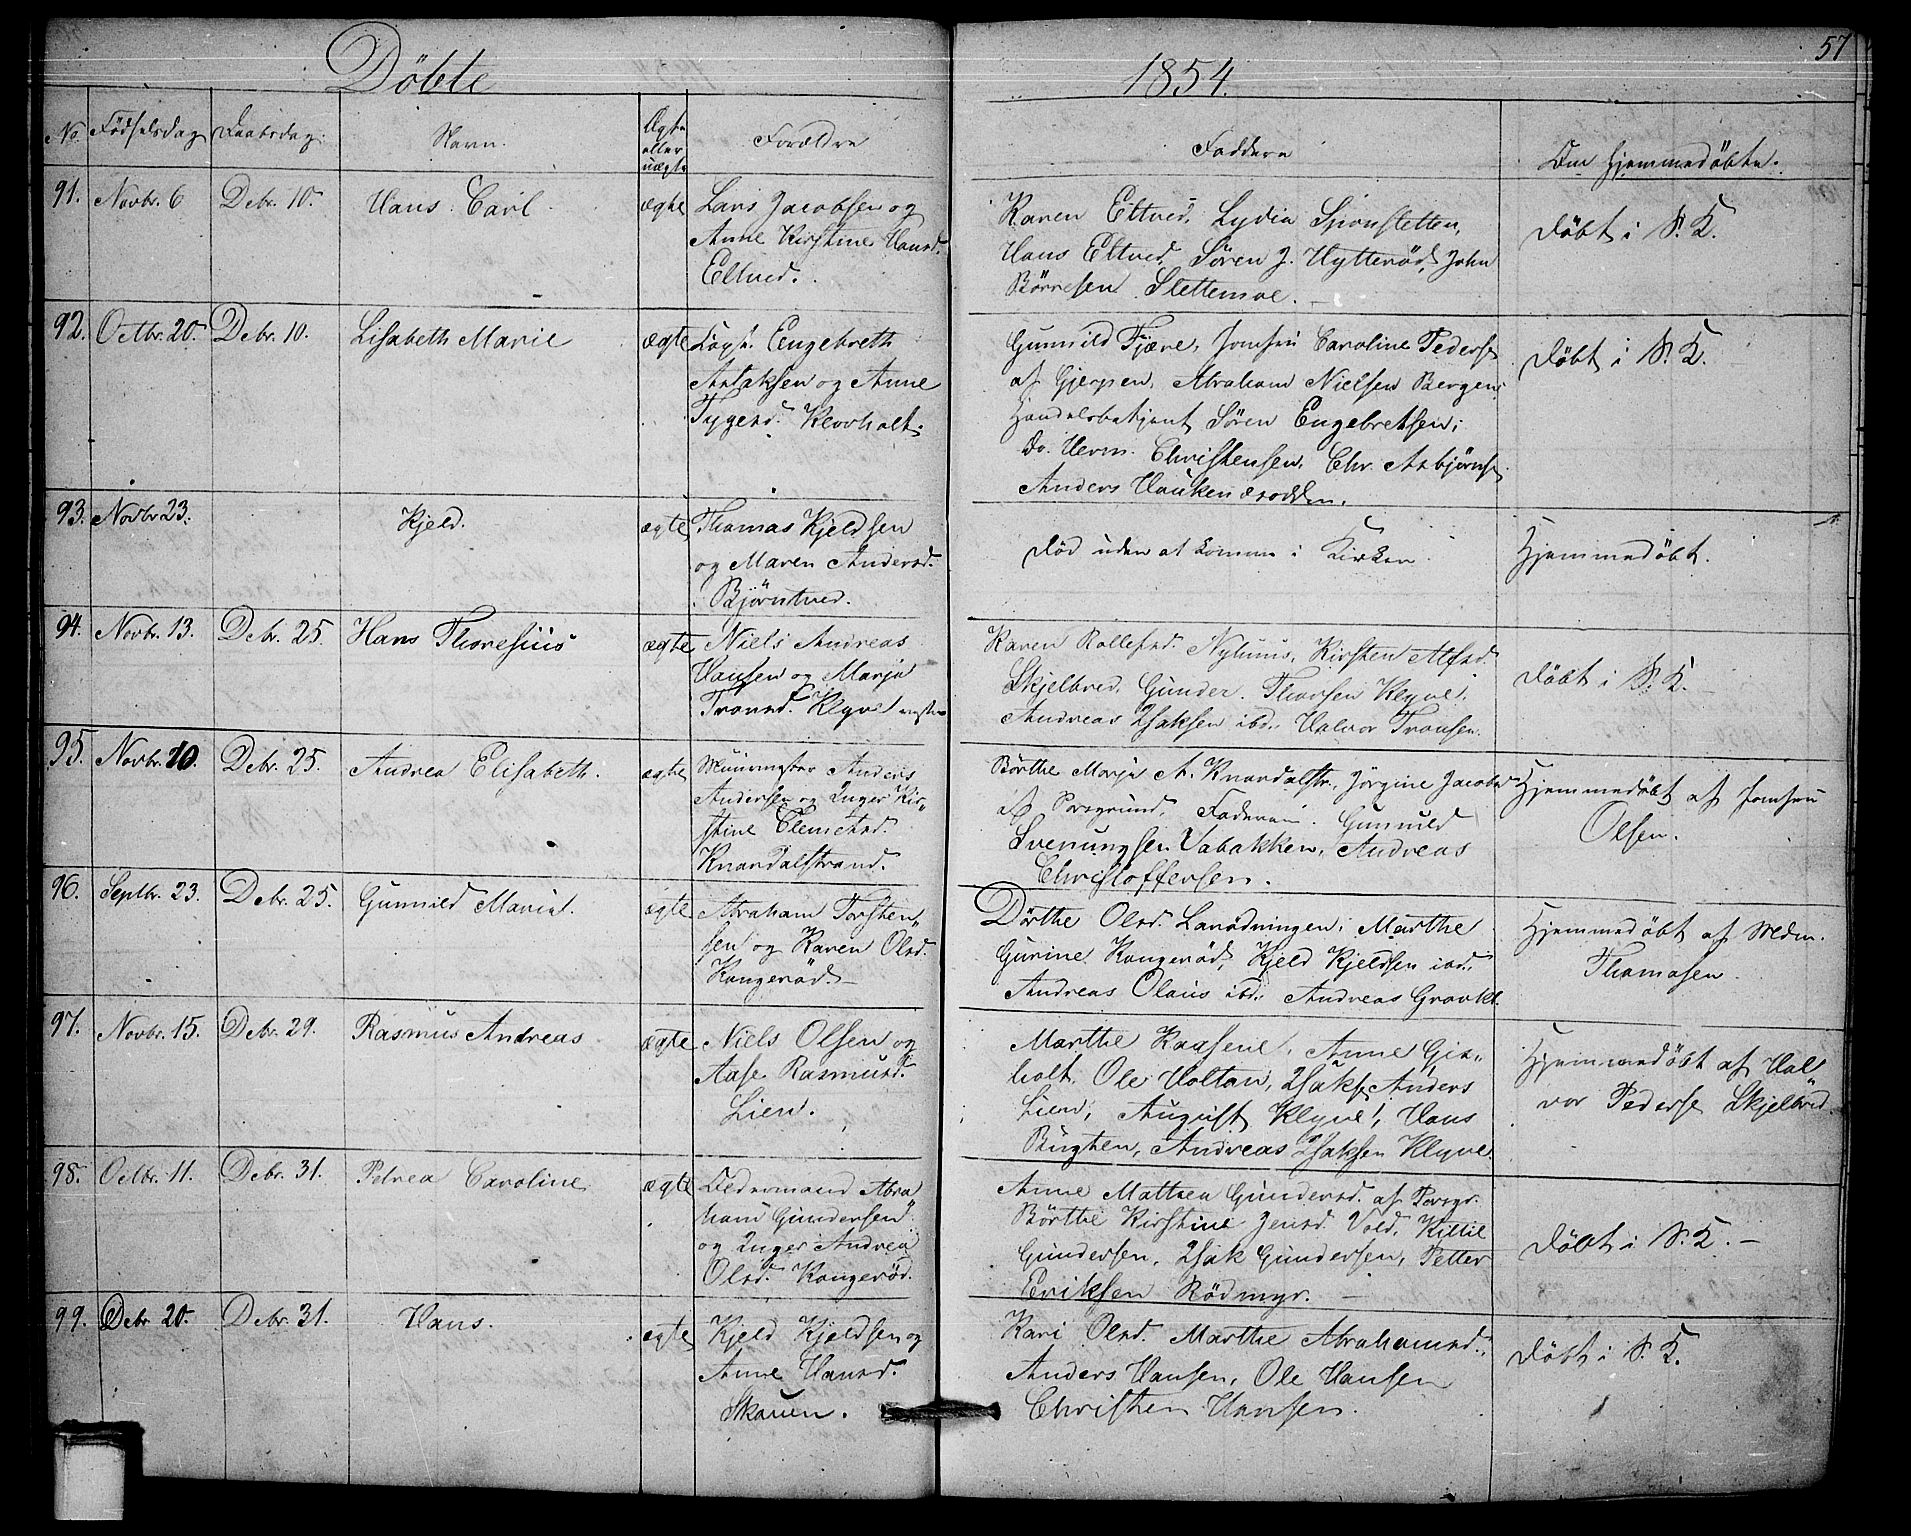 Döbte 1854. 57
No Fødselsdag Daabsdag. Navn. Ægte eller uægte Forældre Faddere Om Hjemmedöbte.
91. Novbr. 6 Debr. 10. Hans Carl ægte
Lars Jacobsen og
Anne Kirstine Hansd.
Eltved.
Karen Eltved, Lydia
Hans Eltved, Søren J. Hytterød, John
Börresen Slettemoe.
Döbt i S. K.
92. Octbr. 20. Debr. 10. Lisabeth Marie ægte
Engebreth
Aslaksen og Anne
Tygesd. Klovholt.
Gunnild Fjære, Jomfru Caroline Peders
af Gjerpen, Abraham Nielsen Bergen,
Handelsbetjent Sören Engebretsen,
Do. Herm. Christensen, Chr. Asbjörns
Anders Haukenæsodden.
Döbt i S. K.
93. Novbr 23. Kjeld. ægte
Thomas Kjeldsen
og Maren Andersd.
Björntved.
Död uden at komme i Kirken
Hjemmedöbt.
94. Novbr. 13. Debr. 25. Hans Thoresius ægte
Niels Andreas
Hansen og Marja
Tronsd. Klyve
Karen Rollefsd. Nyhuus, Kirsten Alfsd.
Skjelbred, Gunder Thorsen Klyve,
Andreas Isaksen ibd., Halvor Tronsen.
Döbt i S. K.
95. Novbr. 20. Debr. 25. Andrea Elisabeth. ægte
Muurmester Anders
Andersen og Inger Kir„
stine Clemetsd.
Knardalstrand.
Börthe Marja A. Knardalstr., Jörgine Jacobsd
af Porsgrund, Faderen. Gunnuld
Svenungsen Vabakken, Andreas
Christoffersen.
Hjemmedöbt af Jomfru
Olsen.
96. Septbr. 23. Debr. 25. Gunnild Maria. ægte
Abraham Torsten„
sen og Karen Olsd.
Kongerød.
Dörthe Olsd. Lanödningen, Marthe
Gurine Kongerød, Kjeld Kjeldsen ibd.,
Andreas Olaus ibd., Andreas Gravkl.
Hjemmedöbt af Mdm.
Thomasen.
97. Novbr. 15. Debr. 29. Rasmus Andreas ægte
Niels Olsen og
Aase Rasmusd.
Lien.
Marthe Kaasene, Anne Gis„
holt, Ole Holtan, Isaks Anders
Lien, August Klyve, Hans
Bugten, Andreas Isaksen Klyve.
Hjemmedöbt af Hal
vor Peders Skjelbred.
98. Octbr. 11. Debr. 31. Petrea Caroline ægte
Ledermand Abra
ham Gundersen
og Inger Andrea
Olsd. Kongerød.
Anne Mathea Gundersd. af Porsgr.
Börthe Kirstine Jensd. Vold, Kittil
Gundersen, Isak Gundersen, Petter
Eriksen Rödmyr.
Döbt i S. K. –
99. Debr 20. Debr. 31. Hans. ægte
Kjeld Kjeldsen og
Anne Hansd.
Skauen.
Kari Olsd. Marthe Abrahamsd.,
Anders Hansen, Ole Hansen
Christen Hansen.
Döbt i S. K.